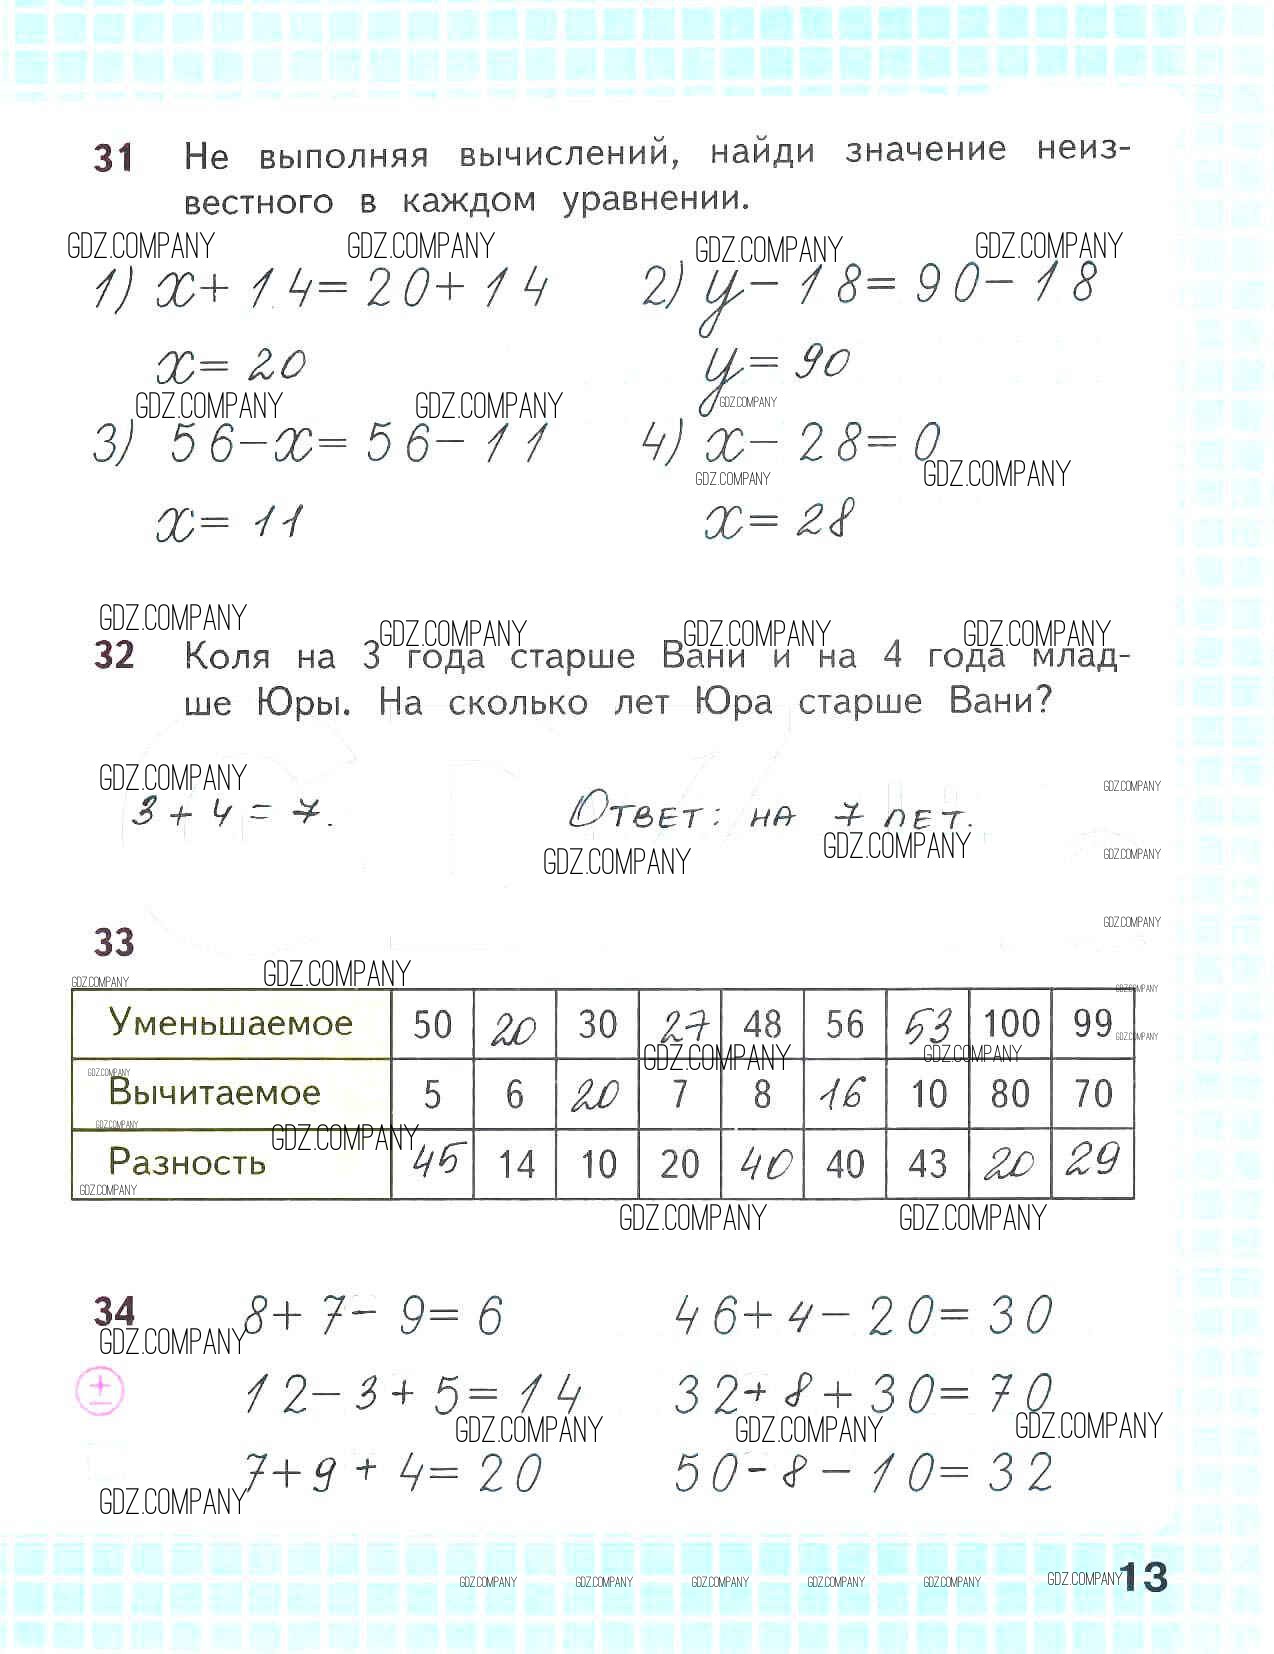 31 Не выполняя вычислений, найди значение неиз-
вестного в каждом уравнении.
GDZ.COMPANY GDZ.COMPANY GDZ.COMPANY GDZ.COMPANY
1) x + 14 = 20 + 14 2) y - 18 = 90 - 18
x = 20 y = 90
GDZ.COMPANY GDZ.COMPANY GDZ.COMPANY
3) 56 - x = 56 - 11 4) x - 28 = 0
GDZ.COMPANY GDZ.COMPANY
x = 11 x = 28
GDZ.COMPANY GDZ.COMPANY GDZ.COMPANY GDZ.COMPANY
32 Коля на 3 года старше Вани и на 4 года млад-
ше Юры. На сколько лет Юра старше Вани?
GDZ.COMPANY GDZ.COMPANY
3 + 4 = 7. Ответ: на 7 лет.
GDZ.COMPANY GDZ.COMPANY GDZ.COMPANY
GDZ.COMPANY
33
GDZ.COMPANY GDZ.COMPANY GDZ.COMPANY
Уменьшаемое 50 20 30 27 48 56 53 100 99
GDZ.COMPANY GDZ.COMPANY GDZ.COMPANY GDZ.COMPANY
Вычитаемое 5 6 20 7 8 16 10 80 70
GDZ.COMPANY GDZ.COMPANY
Разность 45 14 10 20 40 40 43 20 29
GDZ.COMPANY
GDZ.COMPANY GDZ.COMPANY
34 8 + 7 - 9 = 6 46 + 4 - 20 = 30
GDZ.COMPANY
± 12 - 3 + 5 = 14 32 + 8 + 30 = 70
GDZ.COMPANY GDZ.COMPANY GDZ.COMPANY
7 + 9 + 4 = 20 50 - 8 - 10 = 32
GDZ.COMPANY
GDZ.COMPANY GDZ.COMPANY GDZ.COMPANY GDZ.COMPANY GDZ.COMPANY GDZ.COMPANY 13